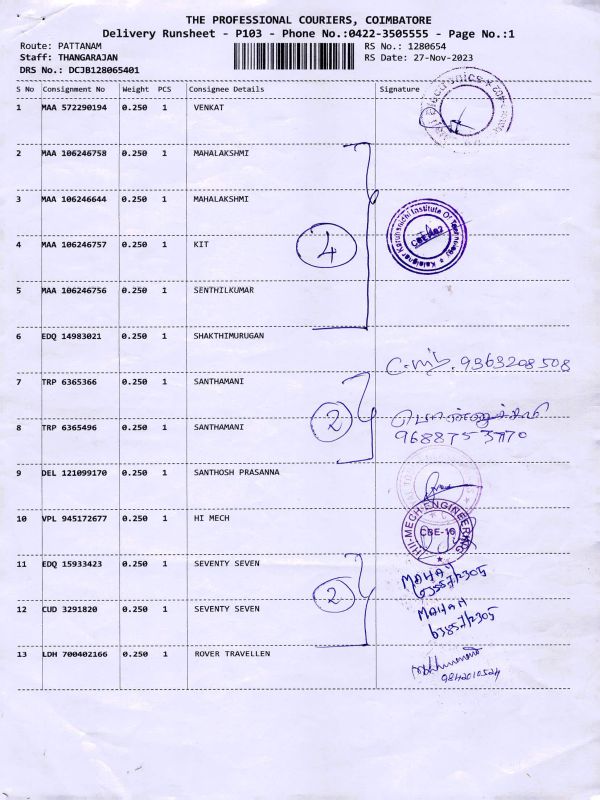 THE PROFESSIONAL COURIERS, COIMBATORE
Delivery Runsheet - P103 - Phone No.:0422-3505555 - Page No.:1
Route: PATTANAM RS No.: 1280654
Staff: THANGARAJAN RS Date: 27-Nov-2023
DRS No.: DCJB128065401
S No Consignment No Weight PCS Consignee Details Signature
1 MAA 572290194 0.250 1 VENKAT
2 MAA 106246758 0.250 1 MAHALAKSHMI
3 MAA 106246644 0.250 1 MAHALAKSHMI
4 MAA 106246757 0.250 1 KIT
4
Kalaignar Karunanidhi Institute Of Technology
5 MAA 106246756 0.250 1 SENTHILKUMAR
6 EDQ 14983021 0.250 1 SHAKTHIMURUGAN
9363208508
7 TRP 6365366 0.250 1 SANTHAMANI
2
8 TRP 6365496 0.250 1 SANTHAMANI
9 DEL 121099170 0.250 1 SANTHOSH PRASANNA
10 VPL 945172677 0.250 1 HI MECH
HI-MECH ENGINEERING
CBE-16
11 EDQ 15933423 0.250 1 SEVENTY SEVEN
MOHAN
2
12 CUD 3291820 0.250 1 SEVENTY SEVEN
MOHAN
13 LDH 700402166 0.250 1 ROVER TRAVELLEN
9842010524